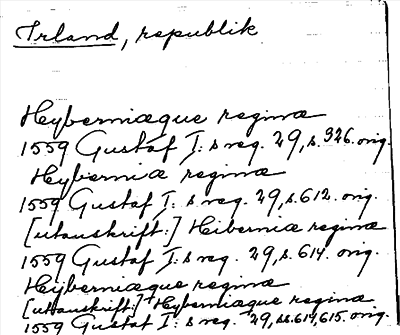 Irland, republik
Hyberniæque reginæ
1559 Gustaf I:s reg. 29, s. 326. orig.
Hyberniæ reginæ
1559 Gustaf I:s reg. 29, s. 612. orig.
[utanskrift:] Hiberniæ reginæ
1559 Gustaf I:s reg. 29, s. 614. orig.
Hyberniæque reginæ
[utanskrift:] Hyberniæque reginæ
1559 Gustaf I:s reg. 29, ss. 614, 615. orig.